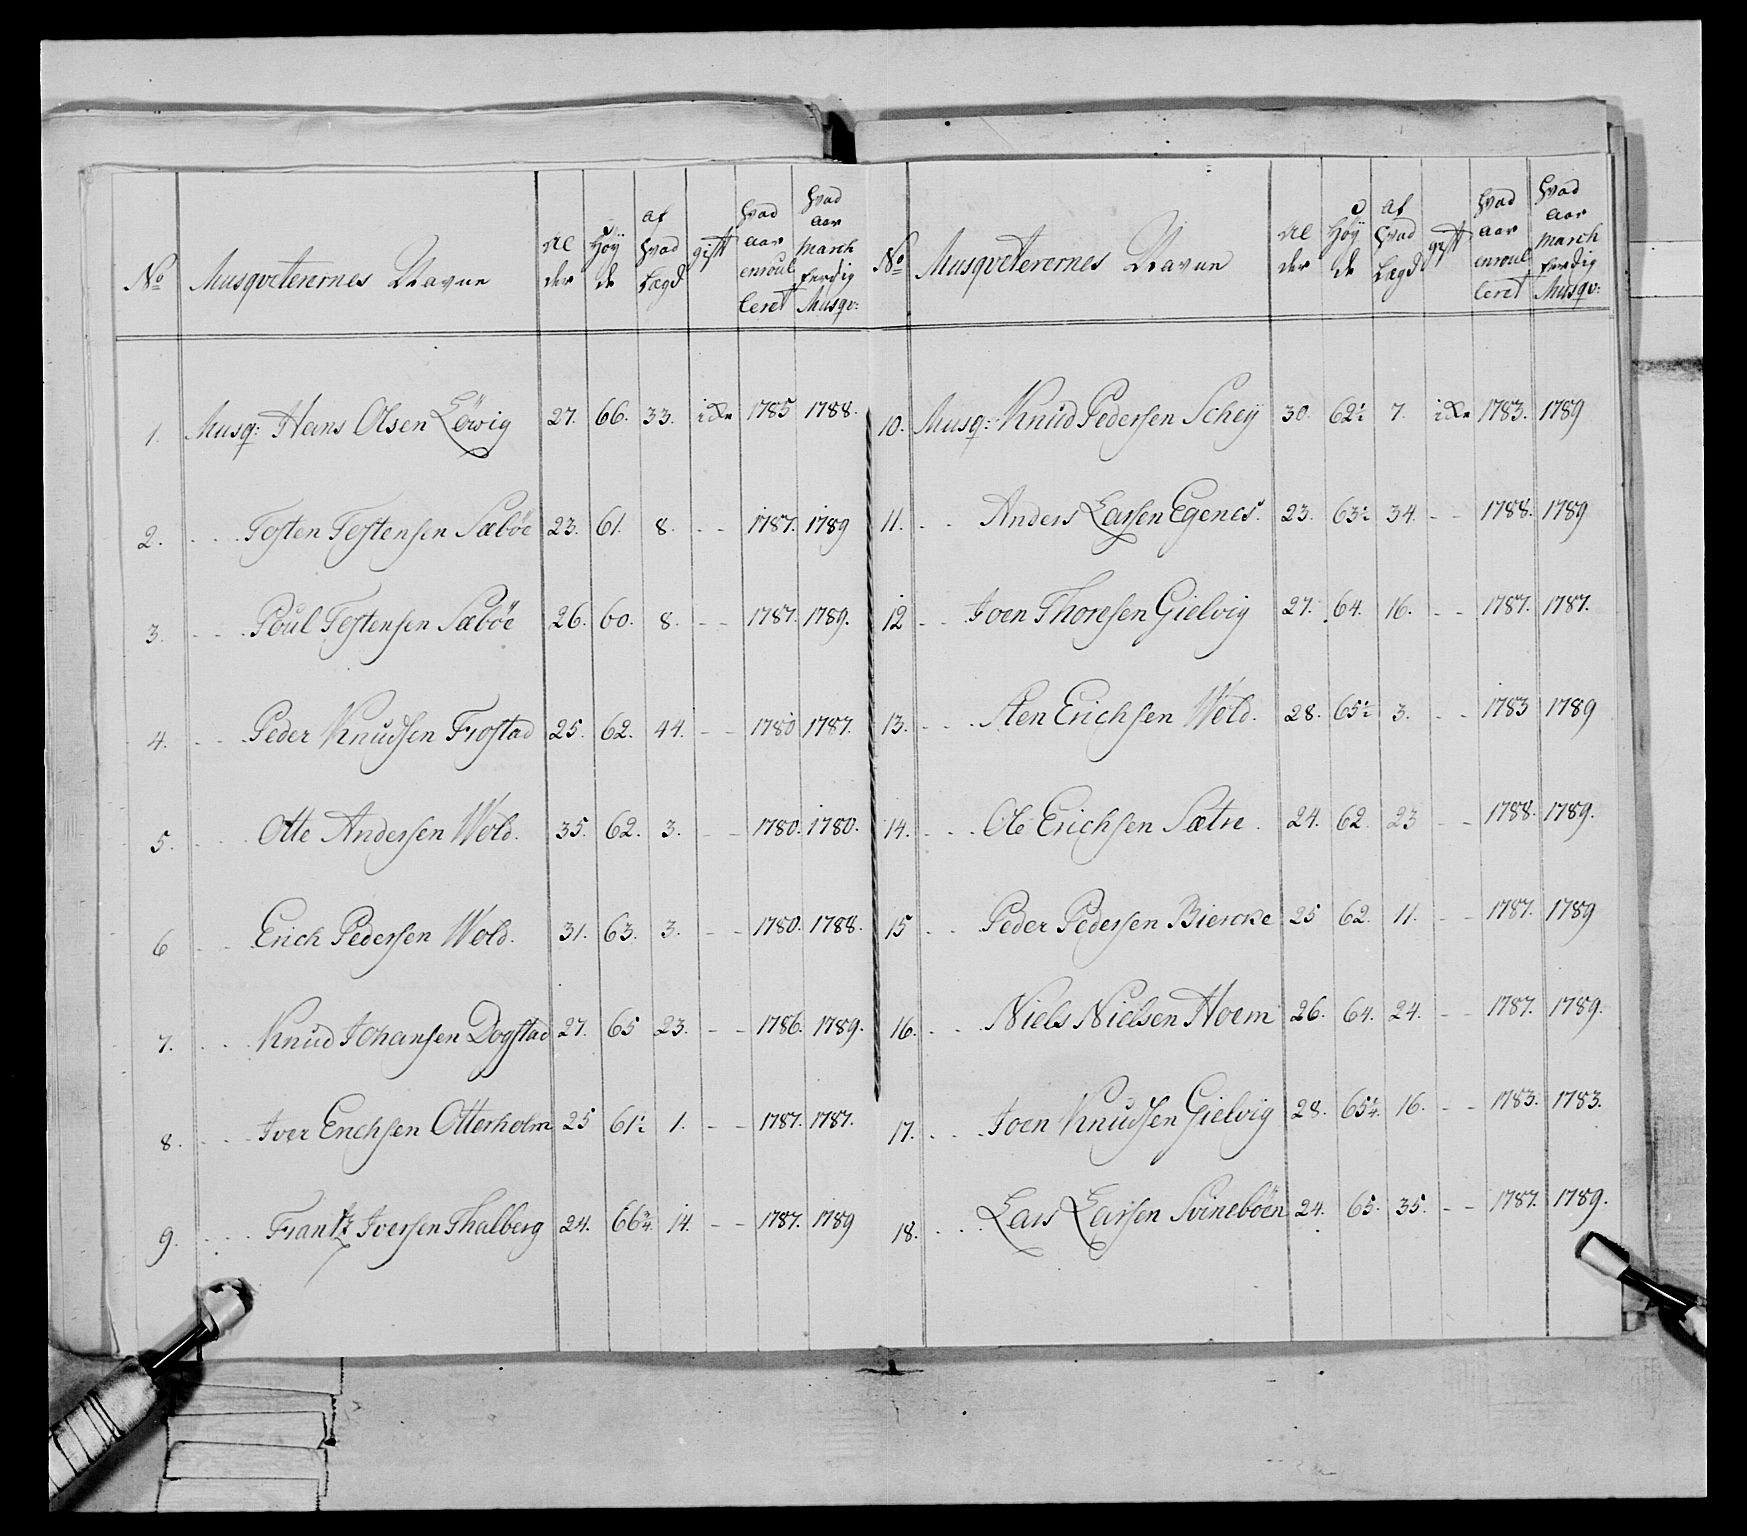 No Musqveterernes Navne Al der Höÿ de af hvad Lægd gift hvad aar enroul leret hvad aar march færdig Musqv:
1. Musq: Hans Olsen Löwig 27. 66. 33. ikke 1785 1788.
2. - - - Tosten Tostensen Sæböe 23. 61. 8. - - 1787. 1789
3. - - - Poul Tostensen Sæböe 26. 60. 8. - - 1787. 1789.
4. - - - Peder Knudsen Frostad 25. 62. 44. - - 1780 1787.
5. - - - Otte Andersen Wold. 35. 62. 3. - - 1780. 1780.
6 - - - Erich Pedersen Wold. 31. 63. 3. - - 1780. 1788.
7. - - - Knud Johansen Dogstad 27. 65 23. - - 1786. 1789.
8. - - - Iver Erichsen Otterholm 25 61½ 1. - - 1787. 1787.
9. - - - Frantz Iversen Thalberg 24. 66¾ 14. - - 1787. 1789
No Musqveterernes Navne Al der Höÿ de af hvad Lægd gift hvad aar enroul leret hvad aar march færdig Musqv:
10. Musq: Knud Pedersen Scheÿ 30. 62½ 7. ikke 1783. 1789
11. - - Anders Larsen Egenes. 23. 63½ 34. - - 1788. 1789
12 - - Joen Thoresen Gielvig 27. 64. 16. - - 1787. 1787.
13. - - - Sten Erichsen Wold. 28. 65½ 3. - - 1783 1789
14. - - - Ole Erichsen Sætre. 24. 62. 23 - - 1788. 1789.
15 - - Peder Pedersen Biercke 25 62. 11. - - 1787. 1789
16. - - Niels Nielsen Hoem 26. 64. 24. - - 1787. 1789.
17. - - - Joen Knudsen Gielvig 28. 65¼. 16. - - 1783. 1783.
18. - - Lars Larsen Svineböen 24. 65. 35. - - 1787. 1789.